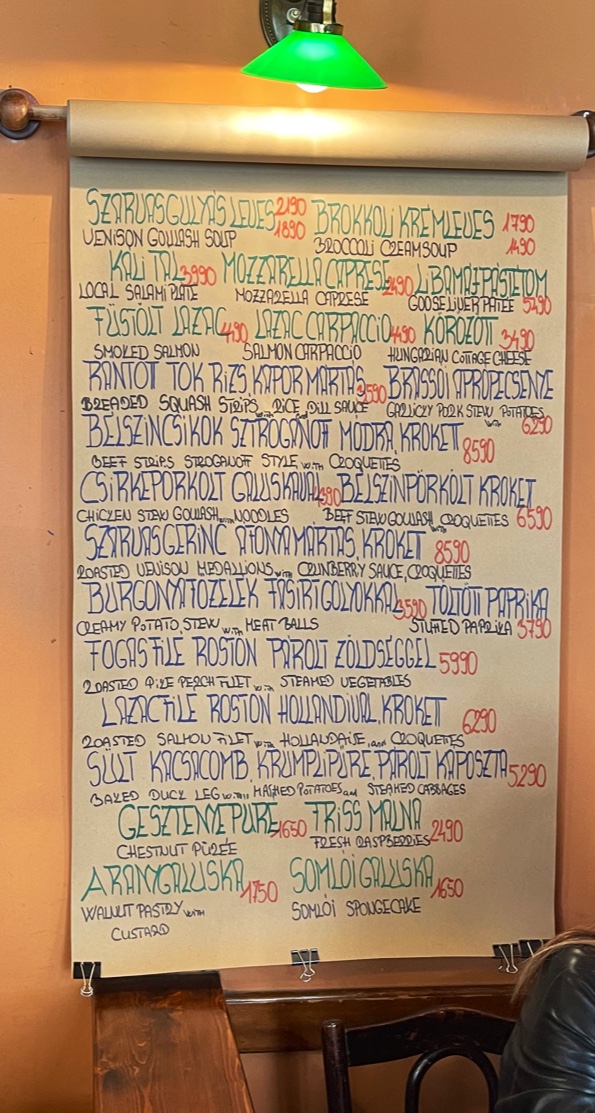 SZARVASGULYÁSLEVES 2190 BROKKOLI KRÉMLEVES 1790
1890 1490
VENISON GOULASH SOUP BROCCOLI CREAMSOUP
KALI TÁL 3990 MOZZARELLA CAPRESE 2490 LIBAMÁJPÁSTÉTOM
LOCAL SALAMI PLATE MOZZARELLA CAPRESE GOOSE LIVER PATÉE 5290
FÜSTÖLT LAZAC 4490 LAZAC CARPACCIO 4490 KÖRÖZÖTT 3490
SMOKED SALMON SALMON CARPACCIO HUNGARIAN COTTAGE CHEESE
RÁNTOTT TÖK RIZS, KAPORMÁRTÁS 3590 BRASSÓI APRÓPECSENYE
BREADED SQUASH STRIPS with RICE and DILL SAUCE GARLICZY PORK STEW with POTATOES 6290
BÉLSZÍNCSÍKOK SZTROGANOFF MÓDRA, KROKETT 8590
BEEF STRIPS STROGANOFF STYLE with CROQUETTES
CSIRKEPÖRKÖLT GALUSKÁVAL 4390 BÉLSZÍNPÖRKÖLT KROKETT
CHICKEN STEW GOULASH with NOODLES BEEF STEW GOULASH with CROQUETTES 6590
SZARVASGERINC ÁFONYAMÁRTÁS, KROKETT 8590
ROASTED VENISON MEDALLIONS with CRUNBERRY SAUCE, CROQUETTES
BURGONYAFŐZELÉK FASÍRTGOLYÓKKAL 3590 TÖLTÖTT PAPRIKA
CREAMY POTATO STEW with MEAT BALLS STUFFED PAPRIKA 3790
FOGASFILÉ ROSTON PÁROLT ZÖLDSÉGGEL 5990
ROASTED PIKE PERCH FILET with STEAMED VEGETABLES
LAZACFILÉ ROSTON HOLLANDIVAL, KROKETT 6290
ROASTED SALMON FILET with HOLLANDAISE, and CROQUETTES
SÜLT KACSACOMB, KRUMPLIPÜRÉ, PÁROLT KÁPOSZTA 5290
BAKED DUCK LEG with MASHED POTATOES and STEAMED CABBAGES
GESZTENYEPÜRÉ 1650 FRISS MÁLNA 2490
CHESTNUT PÜRÉE FRESH RASPBERRIES
ARANYGALUSKA 1750 SOMLÓI GALUSKA 1650
WALNUT PASTRY with SOMLÓI SPONGECAKE
CUSTARD